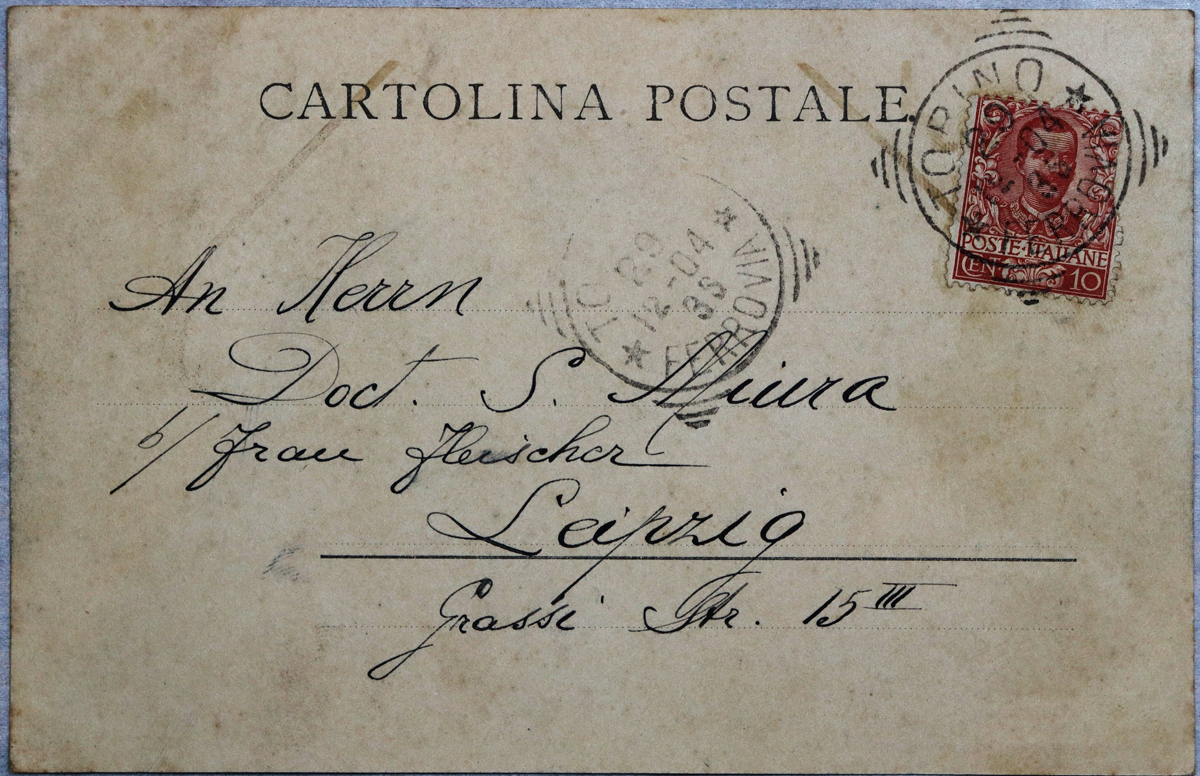 CARTOLINA POSTALE.
TORINO
29
12-04
FERROVIA
POSTE·ITALIANE
CENT 10
TO
29
12-04
FERROVIA
An Herrn
Doct. S. Miura
b/ Frau Fleischer
Leipzig
Grassi Str. 15 III